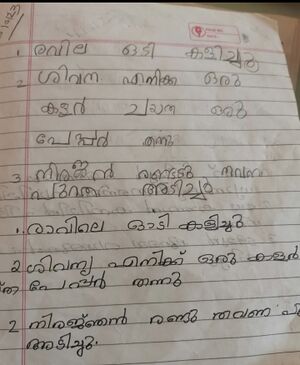 1. രവില ഒടി കളിച്ചു
2 ശിവന എനിക്ക ഒരു
കളർ ചയത ഒരു
പേപ്പർ തന്നു
3. നിരജൻ രണ്ടു തവണ
അടിച്ചു
1. രാവിലെ ഓടി കളിച്ചു
2 ശിവന്യ എനിക്ക് ഒരു കളർ
പേപ്പർ തന്നു
2 നിരജ്ഞൻ രണ്ടു തവണ
അടിച്ചു.